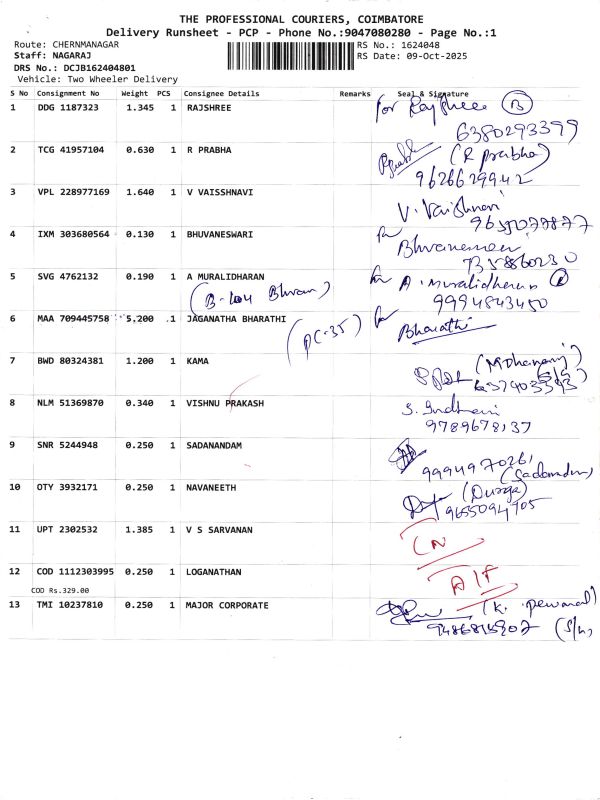 THE PROFESSIONAL COURIERS, COIMBATORE
Delivery Runsheet - PCP - Phone No.:9047080280 - Page No.:1
Route: CHERNMANAGAR
RS No.: 1624048
Staff: NAGARAJ
RS Date: 09-Oct-2025
DRS No.: DCJB162404801
Vehicle: Two Wheeler Delivery
S No Consignment No Weight PCS Consignee Details Remarks Seal & Signature
1 DDG 1187323 1.345 1 RAJSHREE for Rajshree B
6380293399
2 TCG 41957104 0.630 1 R PRABHA (R prabha)
9626629942
3 VPL 228977169 1.640 1 V VAISSHNAVI V. Vaishnavi
4 IXM 303680564 0.130 1 BHUVANESWARI for
5 SVG 4762132 0.190 1 A MURALIDHARAN for A. Muralidharan
(B-104 Bhvan) 9994843450
6 MAA 709445758 5.200 1 JAGANATHA BHARATHI (PC-35) for Bharathi
7 BWD 80324381 1.200 1 KAMA
8 NLM 51369870 0.340 1 VISHNU PRAKASH
9789678137
9 SNR 5244948 0.250 1 SADANANDAM
10 OTY 3932171 0.250 1 NAVANEETH (Durga)
11 UPT 2302532 1.385 1 V S SARVANAN CN
12 COD 1112303995 0.250 1 LOGANATHAN A/F
COD Rs.329.00
13 TMI 10237810 0.250 1 MAJOR CORPORATE